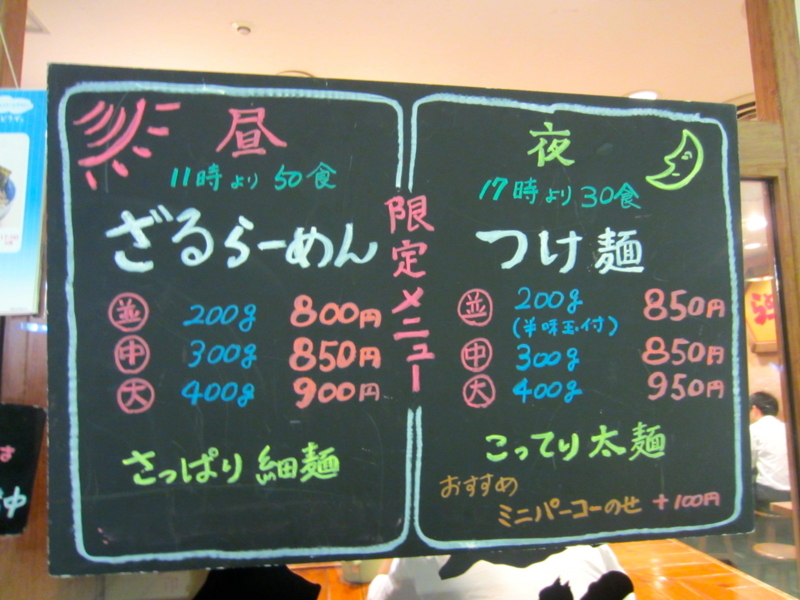 昼
11時より50食
ざるらーめん
並 200g 800円
中 300g 850円
大 400g 900円
さっぱり 細麺
限定メニュー
夜
17時より30食
つけ麺
並 200g 850円
(半味玉付)
中 300g 850円
大 400g 950円
こってり 太麺
おすすめ
ミニパーコーのせ +100円